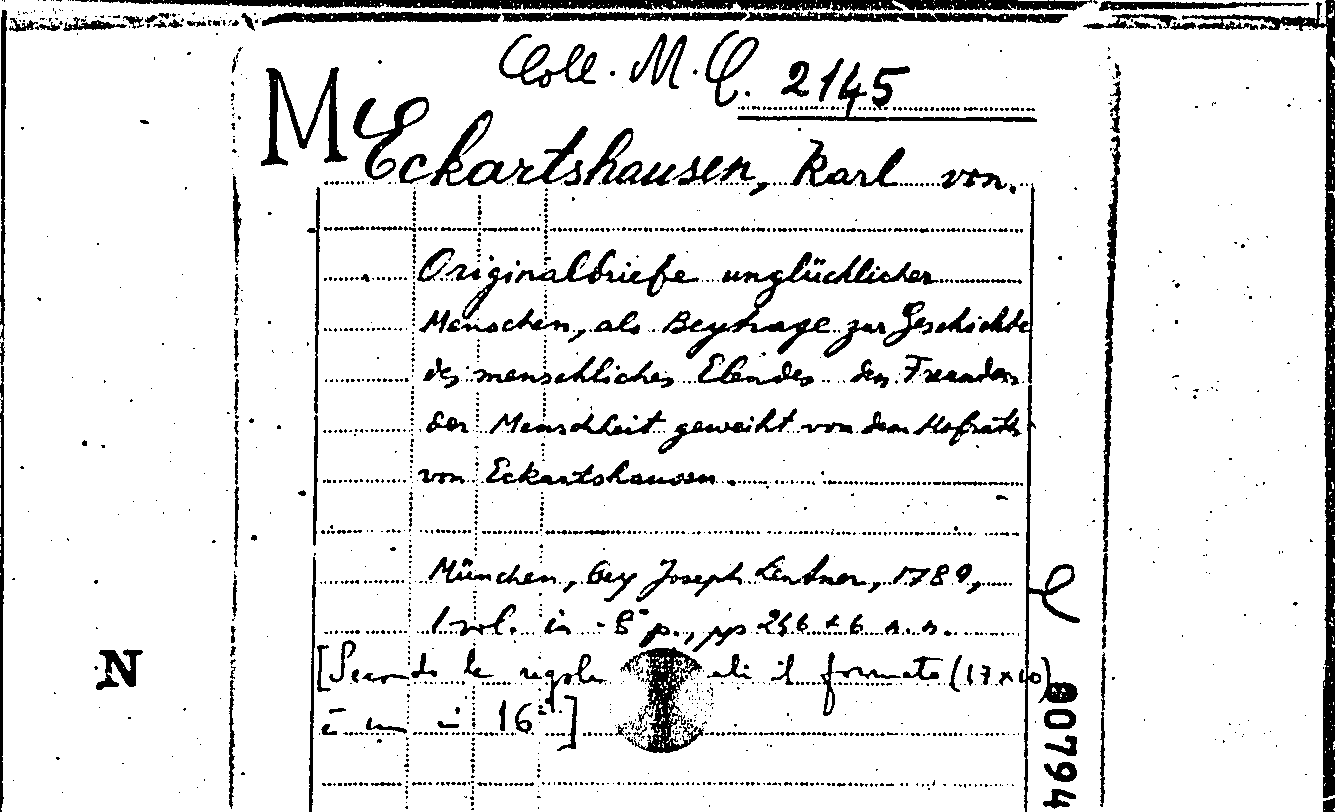 Coll. M. C. 2145
M
Eckartshausen, Karl von.
Originalbriefe unglücklicher
Menschen, als Beytrage zur Geschichte
des menschliches Elendes den Freunden
der Menschheit geweiht von dem Hofrath
von Eckartshausen.
München, bey Joseph Lentner, 1789,
1 vol. in -8° p., pp 256 + 6 n. n.
N
[Secondo le regole il formato (17×10)
è un in 16°]
00794